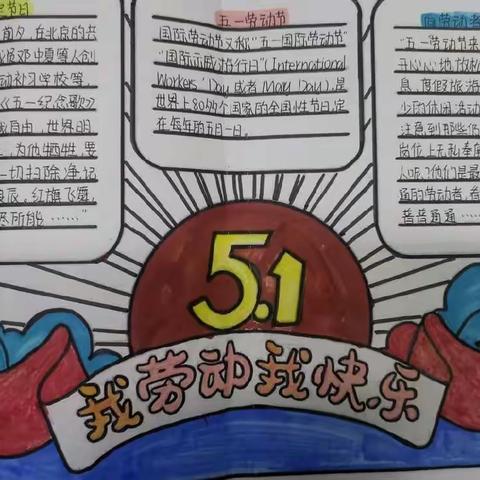 节日
首夕,在北京的共
邓中夏等人创
动补习学校等
《五一纪念歌》
自由,世界明
,为他牺牲,
一切扫除净记
辰,红旗飞舞,
尽所能……"
五一劳动节
国际劳动节又称"五一国际劳动节"
"国际示威游行日"(International
Workers' Day 或者 May Day),是
世界上80多个国家的全国性节日,定
在每年的五月一日。
劳动者
"五一劳动节来
开心心地放松
息,度假旅游
少的休闲活动
注意到那些仍
岗位上无私奉
人呢?他们是最
的劳动者,看
普普通通……
5.1
我劳动我快乐